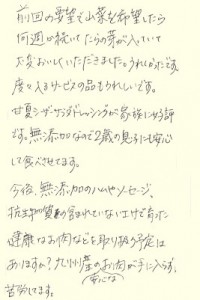 前回の要望で山菜を希望したら
何週か続いてたらの芽が入っていて
大変おいしくいただきました。うれしかったです。
度々入るサービスの品もうれしいです。
甘夏シーザーサラダドレッシングが家族に好評
です。無添加なので2歳の息子にも安心
して食べさせてます。
今後、無添加のハムやソーセージ、
抗生物質の含まれていないエサで育った
健康なお肉などを取り扱う予定は
ありますか?九州産のお肉が手に入らず、
安心な
苦労してます。